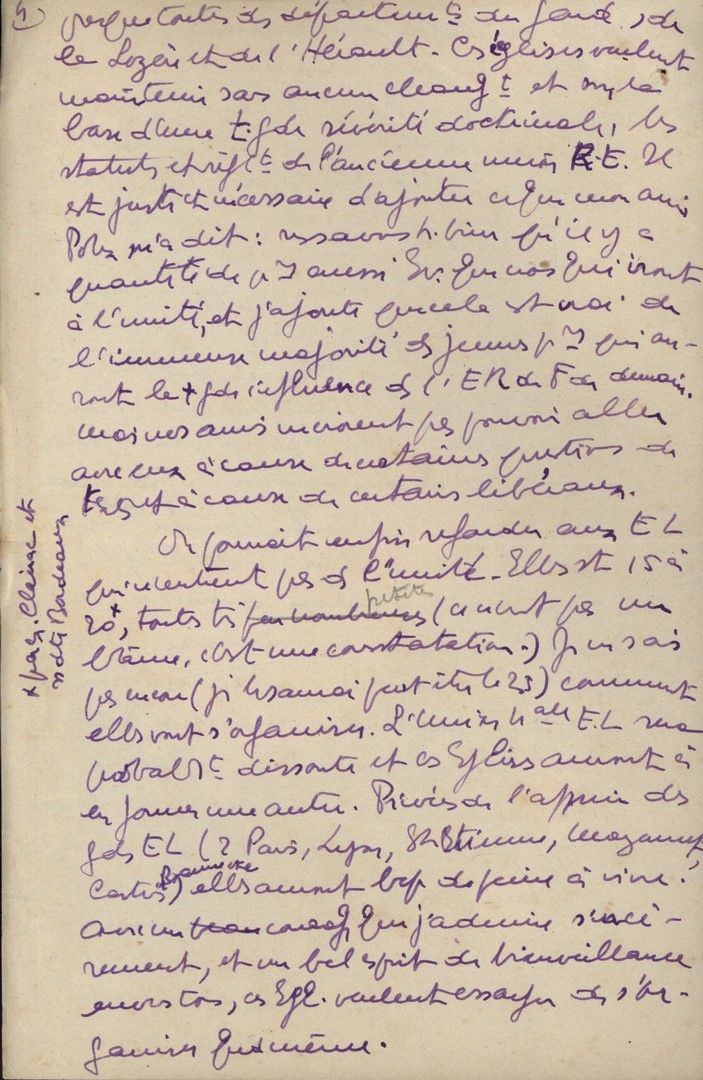 4)
presque toutes des départeme ts du Gard, de
la Lozère et de l'Hérault. Ces églises veulent
maintenir sans aucun changt et sur la
base d'une t. gde sévérité doctrinale, les
statuts et règlts de l'ancienne union R.E. Il
est juste et nécessaire d'ajouter ce que mon ami
m'a dit : ns savons t. bien qu'il y a
quantité de p rs aussi Ev. que nos qui iront
à l'unité, et j'ajoute que cela est vrai de
l'immense majorité des jeunes p rs qui au-
ront le + gde influence ds l'ER de F de demain.
mais nos amis ne croient pas pouvoir aller
avec eux à cause de certaines questions de
et à cause de certains libéraux.
On pourrait enfin regarder aux EL
qui n'entrent pas ds l'unité. Elles st 15 à
20 +, toutes ts peu nombreuses petites (ce n'est pas un
blâme, c'est une constatation.) Je ne sais
pas encore (je le saurai peut être le 23) comment
elles vont s'organiser. L'Union nale E.L sera
probablt dissoute et ces Eglises auront à
en former une autre. Privées de l'appui des
gdes EL (2 Paris, Lyon, St Etienne, Mazamet,
Castres) elles auront bcp de peine à vivre.
Avec un courage que j'admire sincè-
rement, et un bel esprit de bienveillance
envers tous, ces Egl. veulent essayer de s'or-
ganiser quand même.
+ par ex. Clairac et
Bordeaux